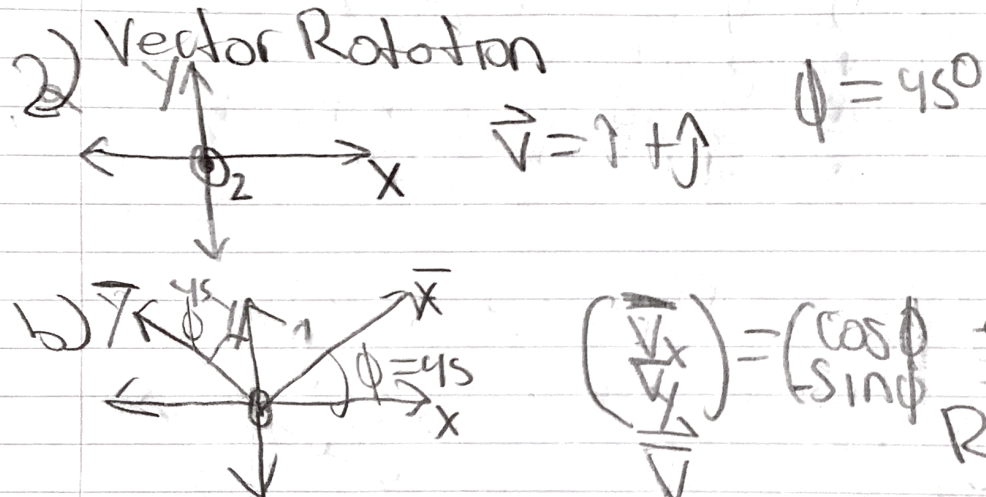 2) Vector Rotation
y
z
x
V⃗ = î + ĵ
ϕ = 45°
b) y̅
45
ϕ
y
x̅
ϕ = 45
x
(V̅x) = (cosϕ
V̅y -sinϕ
V̅⃗
R